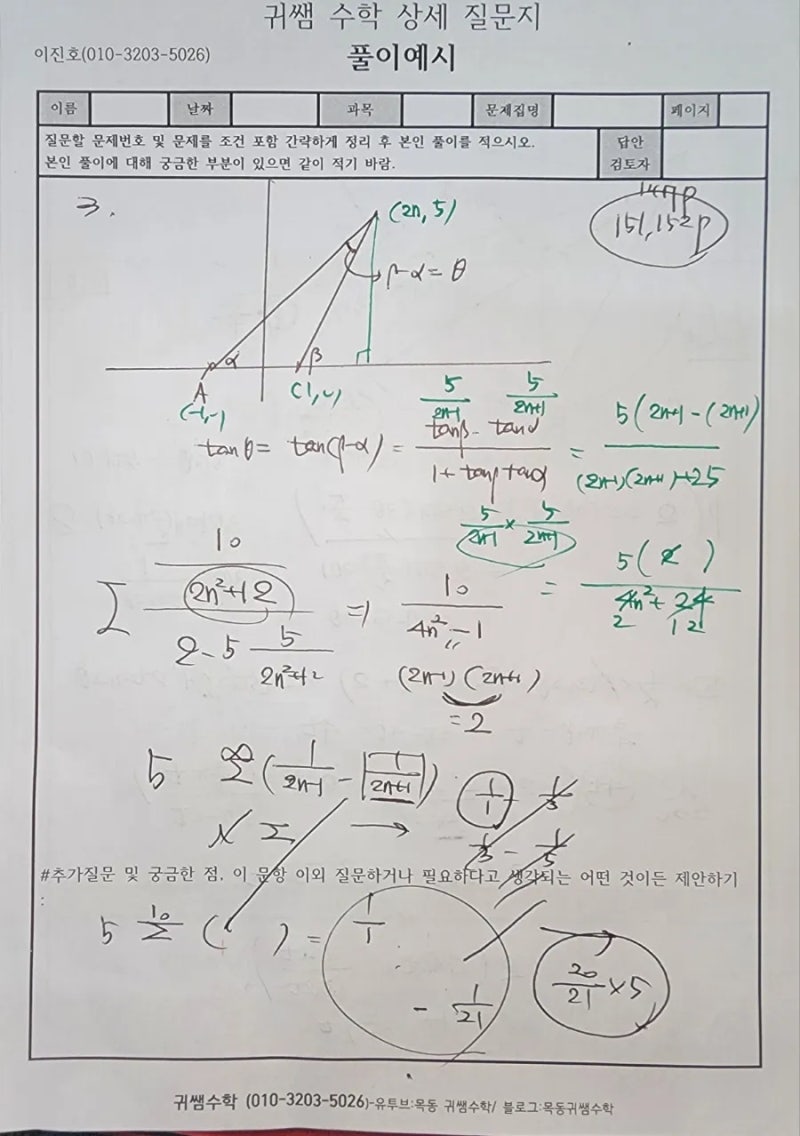 귀쌤 수학 상세 질문지
이진호(010-3203-5026)
풀이예시
이름 날짜 과목 문제집명 페이지
질문할 문제번호 및 문제를 조건 포함 간략하게 정리 후 본인 풀이를 적으시오.
본인 풀이에 대해 궁금한 부분이 있으면 같이 적기 바람.
답안
검토자
3.
151, 152p
(2n, 5)
β-α=θ
α β
A
5/2n+1 5/2n+1
tanθ= tan(β-α) = tanβ - tanα / 1+tanβ tanα = 5(2n+1-(2n+1) / (2n+1)(2n+1)+25
5/2n+1 × 5/2n+1
= 5(2) / 4n²+24
2 12
Σ 10/2n²+12 / 2-5 5/2n²+2 => 10/4n²-1
(2n-1)(2n+1)
=2
5 ∞Σ(1/2n-1 - 1/2n+1)
1/1 - 1/3
1/3 - 1/5
Σ →
#추가질문 및 궁금한 점, 이 문항 이외 질문하거나 필요하다고 생각되는 어떤 것이든 제안하기
:
5 10Σ ( ) = 1/1 - 1/21
20/21 ×5
귀쌤수학 (010-3203-5026)-유투브:목동 귀쌤수학/ 블로그:목동귀쌤수학